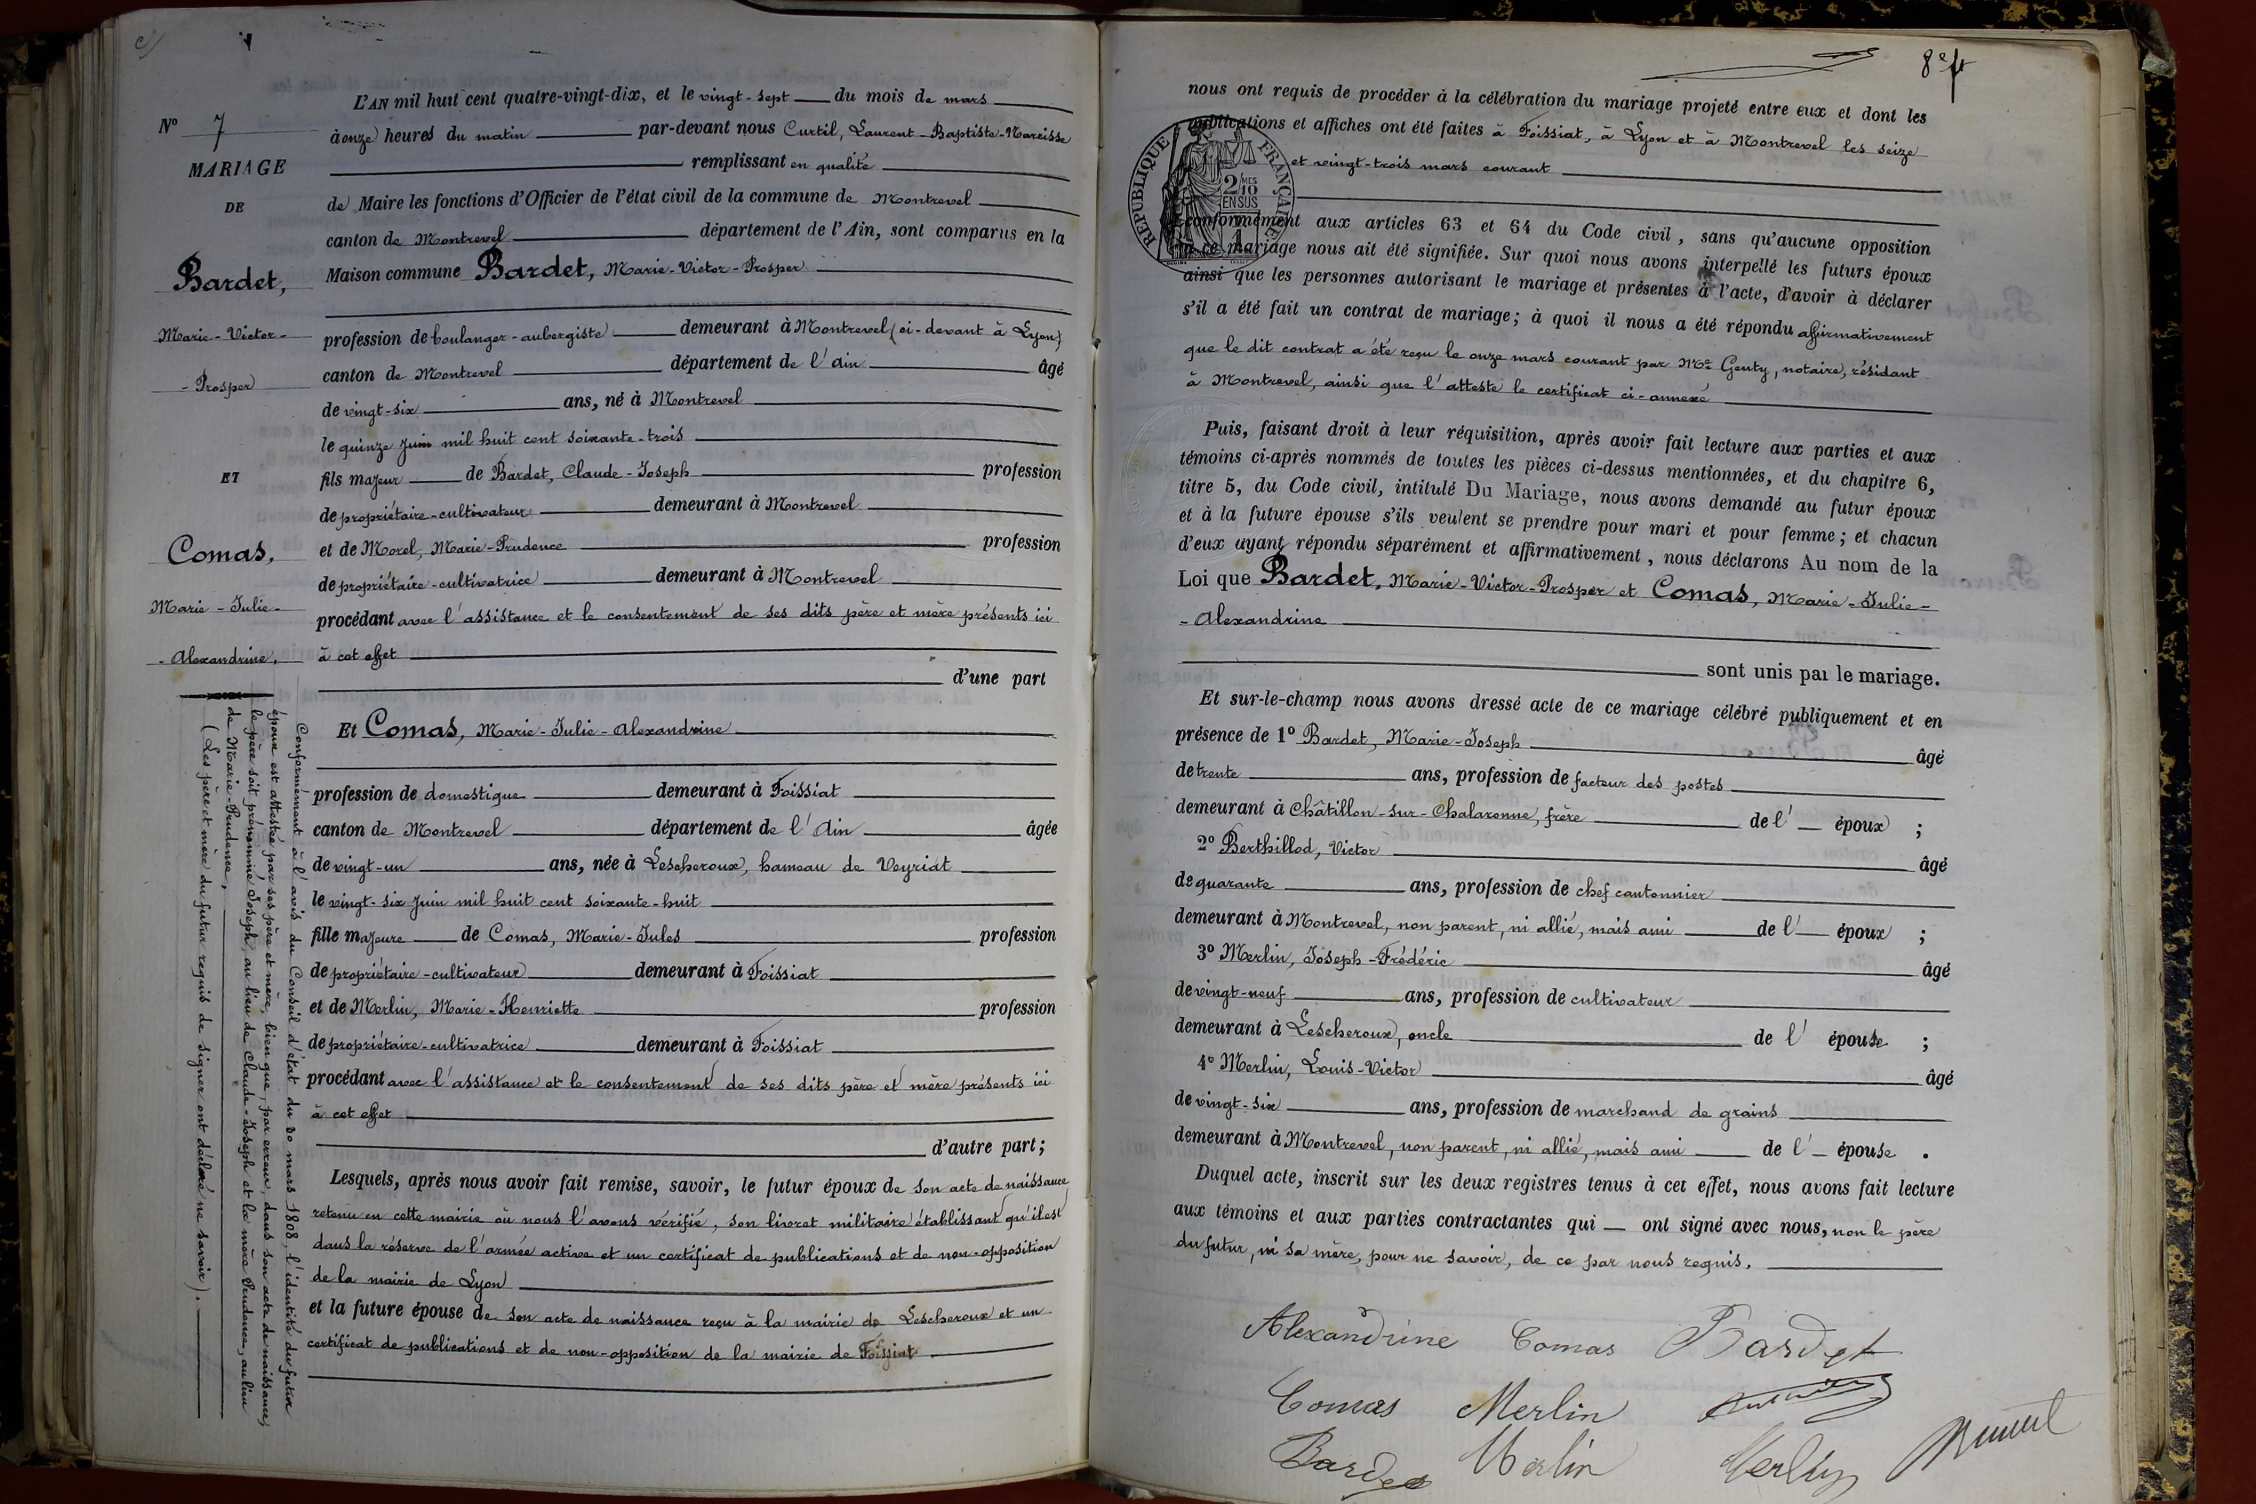 N° 7
MARIAGE
DE
Bardet,
Marie-Victor-
-Prosper
ET
Comas,
Marie-Julie-
-Alexandrine.
Conformément à l'avis du Conseil d'état du 30 mars 1808, l'identité du futur
époux est attestée par ses père et mère, bien que, par erreur, dans son acte de naissance,
le père soit prénommé Joseph, au lieu de Claude-Joseph et la mère Prudence, au lieu
de Marie-Prudence,
(Les père et mère du futur requis de signer ont déclaré ne savoir).
L'AN mil huit cent quatre-vingt-dix, et le vingt-sept du mois de mars
à onze heures du matin par-devant nous Curtil, Laurent-Baptiste-Narcisse
remplissant en qualité
de Maire les fonctions d'Officier de l'état civil de la commune de Montrevel
canton de Montrevel département de l'Ain, sont comparus en la
Maison commune Bardet, Marie-Victor-Prosper
profession de boulanger-aubergiste demeurant à Montrevel (ci-devant à Lyon)
canton de Montrevel département de l'ain âgé
de vingt-six ans, né à Montrevel
le quinze Juin mil huit cent soixante-trois
fils majeur de Bardet, Claude-Joseph profession
de propriétaire-cultivateur demeurant à Montrevel
et de Morel, Marie-Prudence profession
de propriétaire-cultivatrice demeurant à Montrevel
procédant avec l'assistance et le consentement de ses dits père et mère présents ici
à cet effet
d'une part
Et Comas, Marie-Julie-Alexandrine
profession de domestique demeurant à Foissiat
canton de Montrevel département de l'Ain âgée
de vingt-un ans, née à Lescheroux, hameau de Veyriat
le vingt-six Juin mil huit cent soixante-huit
fille majeure de Comas, Marie-Jules profession
de propriétaire-cultivateur demeurant à Foissiat
et de Merlin, Marie-Henriette profession
de propriétaire-cultivatrice demeurant à Foissiat
procédant avec l'assistance et le consentement de ses dits père et mère présents ici
à cet effet
d'autre part;
Lesquels, après nous avoir fait remise, savoir, le futur époux de son acte de naissance
retenu en cette mairie où nous l'avons vérifié, son livret militaire établissant qu'il est
dans la réserve de l'armée active et un certificat de publications et de non-opposition
de la mairie de Lyon
et la future épouse de son acte de naissance reçu à la mairie de Lescheroux et un
certificat de publications et de non-opposition de la mairie de Foissiat
8e ft
nous ont requis de procéder à la célébration du mariage projeté entre eux et dont les
publications et affiches ont été faites à Foissiat, à Lyon et à Montrevel les seize
et vingt-trois mars courant
REPUBLIQUE FRANÇAISE
2/10 MES
EN SUS
conformément aux articles 63 et 64 du Code civil, sans qu'aucune opposition
à ce mariage nous ait été signifiée. Sur quoi nous avons interpellé les futurs époux
ainsi que les personnes autorisant le mariage et présentes à l'acte, d'avoir à déclarer
s'il a été fait un contrat de mariage; à quoi il nous a été répondu affirmativement
que le dit contrat a été reçu le onze mars courant par Me Genty, notaire, résidant
à Montrevel, ainsi que l'atteste le certificat ci-annexé
Puis, faisant droit à leur réquisition, après avoir fait lecture aux parties et aux
témoins ci-après nommés de toutes les pièces ci-dessus mentionnées, et du chapitre 6,
titre 5, du Code civil, intitulé Du Mariage, nous avons demandé au futur époux
et à la future épouse s'ils veulent se prendre pour mari et pour femme; et chacun
d'eux ayant répondu séparément et affirmativement, nous déclarons Au nom de la
Loi que Bardet, Marie-Victor-Prosper et Comas, Marie-Julie-
-Alexandrine
sont unis par le mariage.
Et sur-le-champ nous avons dressé acte de ce mariage célébré publiquement et en
présence de 1° Bardet, Marie-Joseph âgé
de trente ans, profession de facteur des postes
demeurant à Châtillon-sur-Chalaronne, frère de l' époux ;
2° Berthillod, Victor âgé
de quarante ans, profession de chef cantonnier
demeurant à Montrevel, non parent, ni allié, mais ami de l' époux ;
3° Merlin, Joseph-Frédéric âgé
de vingt-neuf ans, profession de cultivateur
demeurant à Lescheroux, oncle de l' épouse ;
4° Merlin, Louis-Victor âgé
de vingt-six ans, profession de marchand de grains
demeurant à Montrevel, non parent, ni allié, mais ami de l' épouse .
Duquel acte, inscrit sur les deux registres tenus à cet effet, nous avons fait lecture
aux témoins et aux parties contractantes qui ont signé avec nous, non le père
du futur, ni sa mère, pour ne savoir, de ce par nous requis.
Alexandrine Comas Bardet
Comas Merlin
Bardet Merlin Merlin